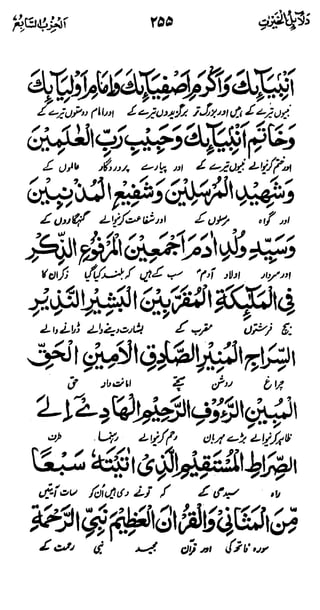 دلائل الخیرات ۲۵۵ الحزب السابع
اَنْۢبِيَآئِكَ وَاَكْرَمِ اَصْفِيَآئِكَ وَاِمَامِ اَوْلِيَآئِكَ
نبیوں تیرے کے ہیں اور بزرگ تر برگزیدوں تیرے کے اور امام دوستوں تیرے کے
وَخَاتِمِ اَنْۢبِيَآئِكَ وَحَبِيْبِ رَبِّ الْعٰلَمِيْنَ
اور ختم کرنیوالے نبیوں تیرے کے اور پیارے پروردگار عالموں کے
وَشَهِيْدِ الْمُرْسَلِيْنَ وَشَفِيْعِ الْمُذْنِبِيْنَ
اور گواہ مرسلوں کے اور شفاعت کرنیوالے گنہگاروں کے
وَسَيِّدِ وُلْدِ اٰدَمَ اَجْمَعِيْنَ الْمَرْفُوْعِ الذِّكْرِ
اور سردار اولاد آدم سب کے ہیں کہ بلند کیا گیا ذکر ان کا
فِي الْمَلٰٓئِكَةِ الْمُقَرَّبِيْنَ الْبَشِيْرِ النَّذِيْرِ
بیچ فرشتوں مقرب کے بشارت دینے والے ڈرانے والے
السِّرَاجِ الْمُنِيْرِ الصَّادِقِ الْاَمِيْنِ الْحَقِّ
چراغ روشن سچے امانت دار حق
الْمُبِيْنِ الرَّءُوْفِ الرَّحِيْمِ الْهَادِيْ اِلٰى
ظاہر کرنیوالے بڑے مہربان رحم کرنیوالے رہنما طرف
الصِّرَاطِ الْمُسْتَقِيْمِ الَّذِيْ اٰتَيْتَهٗ سَبْعًا
راہ سیدھی کے کہ تونے دی ہیں اُن کو سات آیتیں
مِّنَ الْمَثَانِيْ وَالْقُرْاٰنَ الْعَظِيْمَ نَبِيِّ الرَّحْمَةِ
سورہ فاتحہ کی اور قرآن مجید نبی رحمت کے